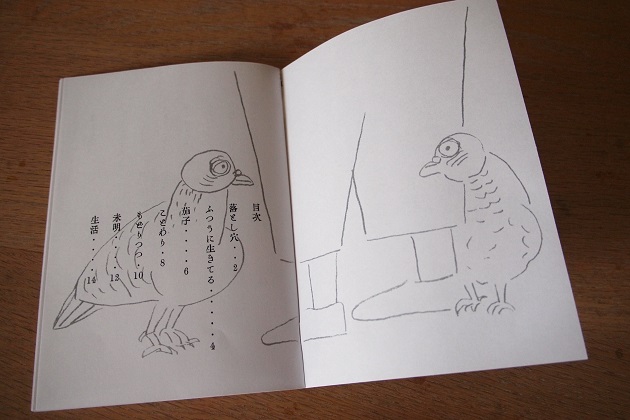 目次
落とし穴・・2
ふつうに生きてる・・・・・・4
茄子・・・・・6
ことわり・8
もせりつつ・10
未明・・・・12
生活・・・・14